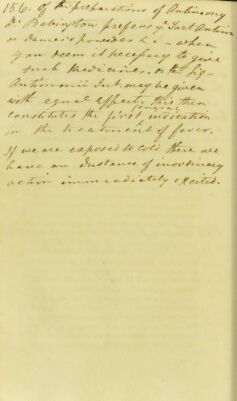 156. Of the preparations of Antimony
Dr. Babington prefers ye Tart Antim
or James's powder &c - when
you deem it necessary to give
such Medicines. or the
Antimonii Tart. may be given
with equal effect, this then
general
constitutes the first indication
in the treatment of fever.
If we are exposed to cold there we
have an Instance of inordinary
action immediately excited.